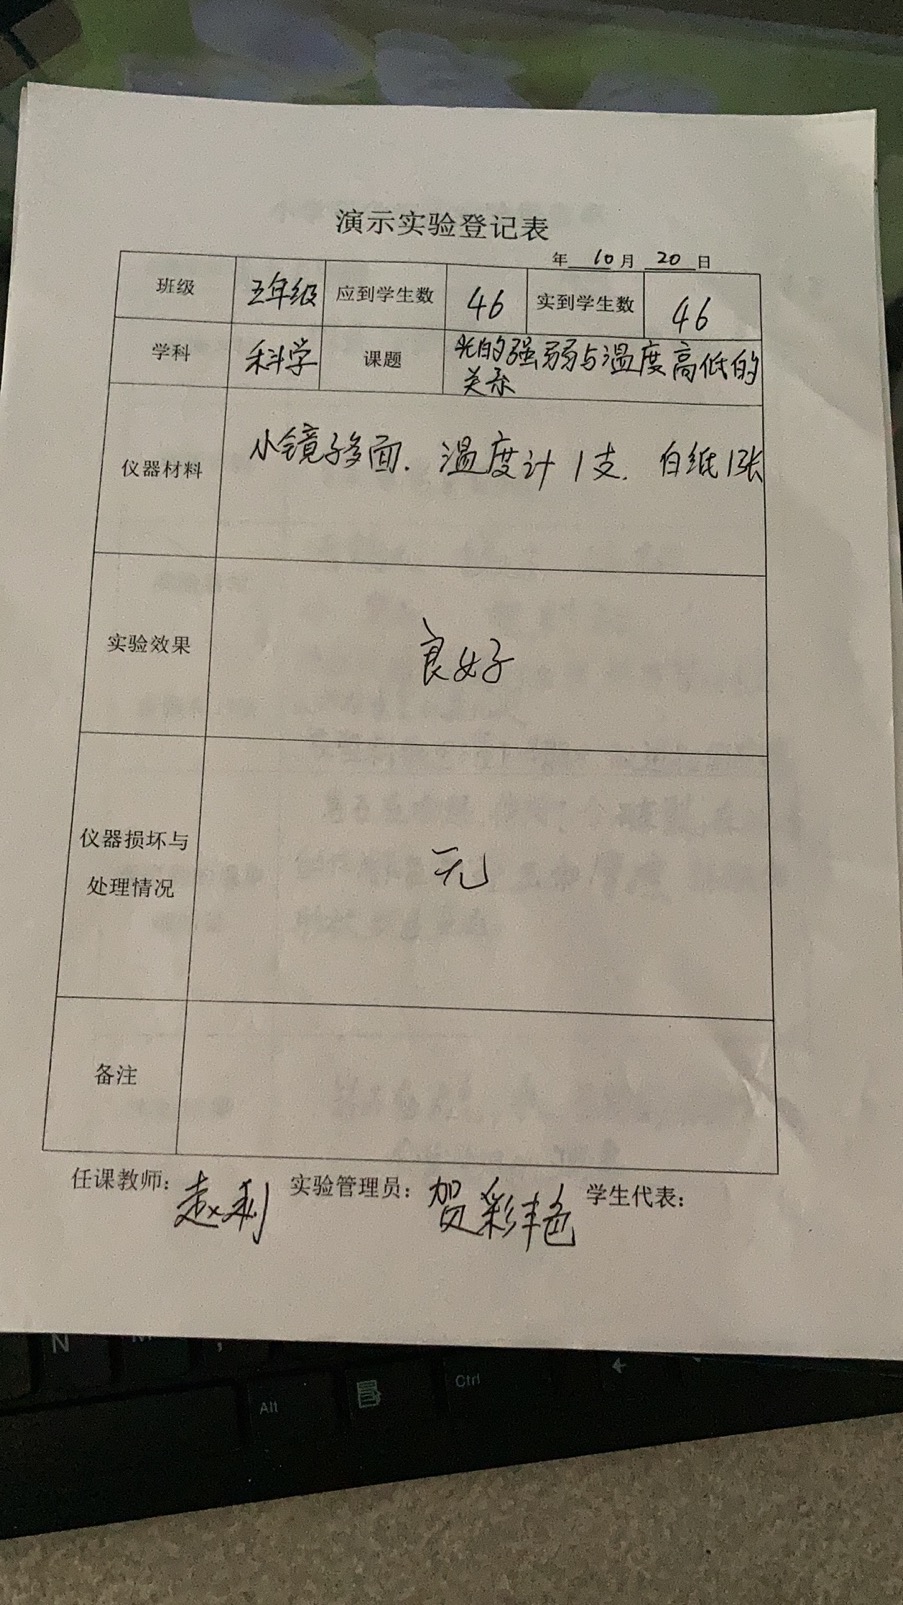 演示实验登记表
年 10 月 20 日
班级 五年级 应到学生数 46 实到学生数 46
学科 科学 课题 光的强弱与温度高低的
关系
仪器材料 小镜子多面. 温度计1支. 白纸1张
实验效果 良好
仪器损坏与
处理情况 无
备注
任课教师: 赵利 实验管理员: 贺彩艳 学生代表:
N
Alt
Ctrl